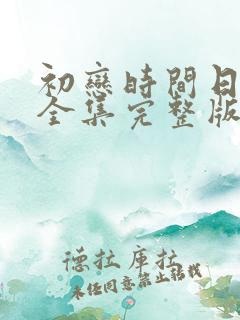 初戀時間日
全集完整版
德拉庫拉
未任同意禁止轉載